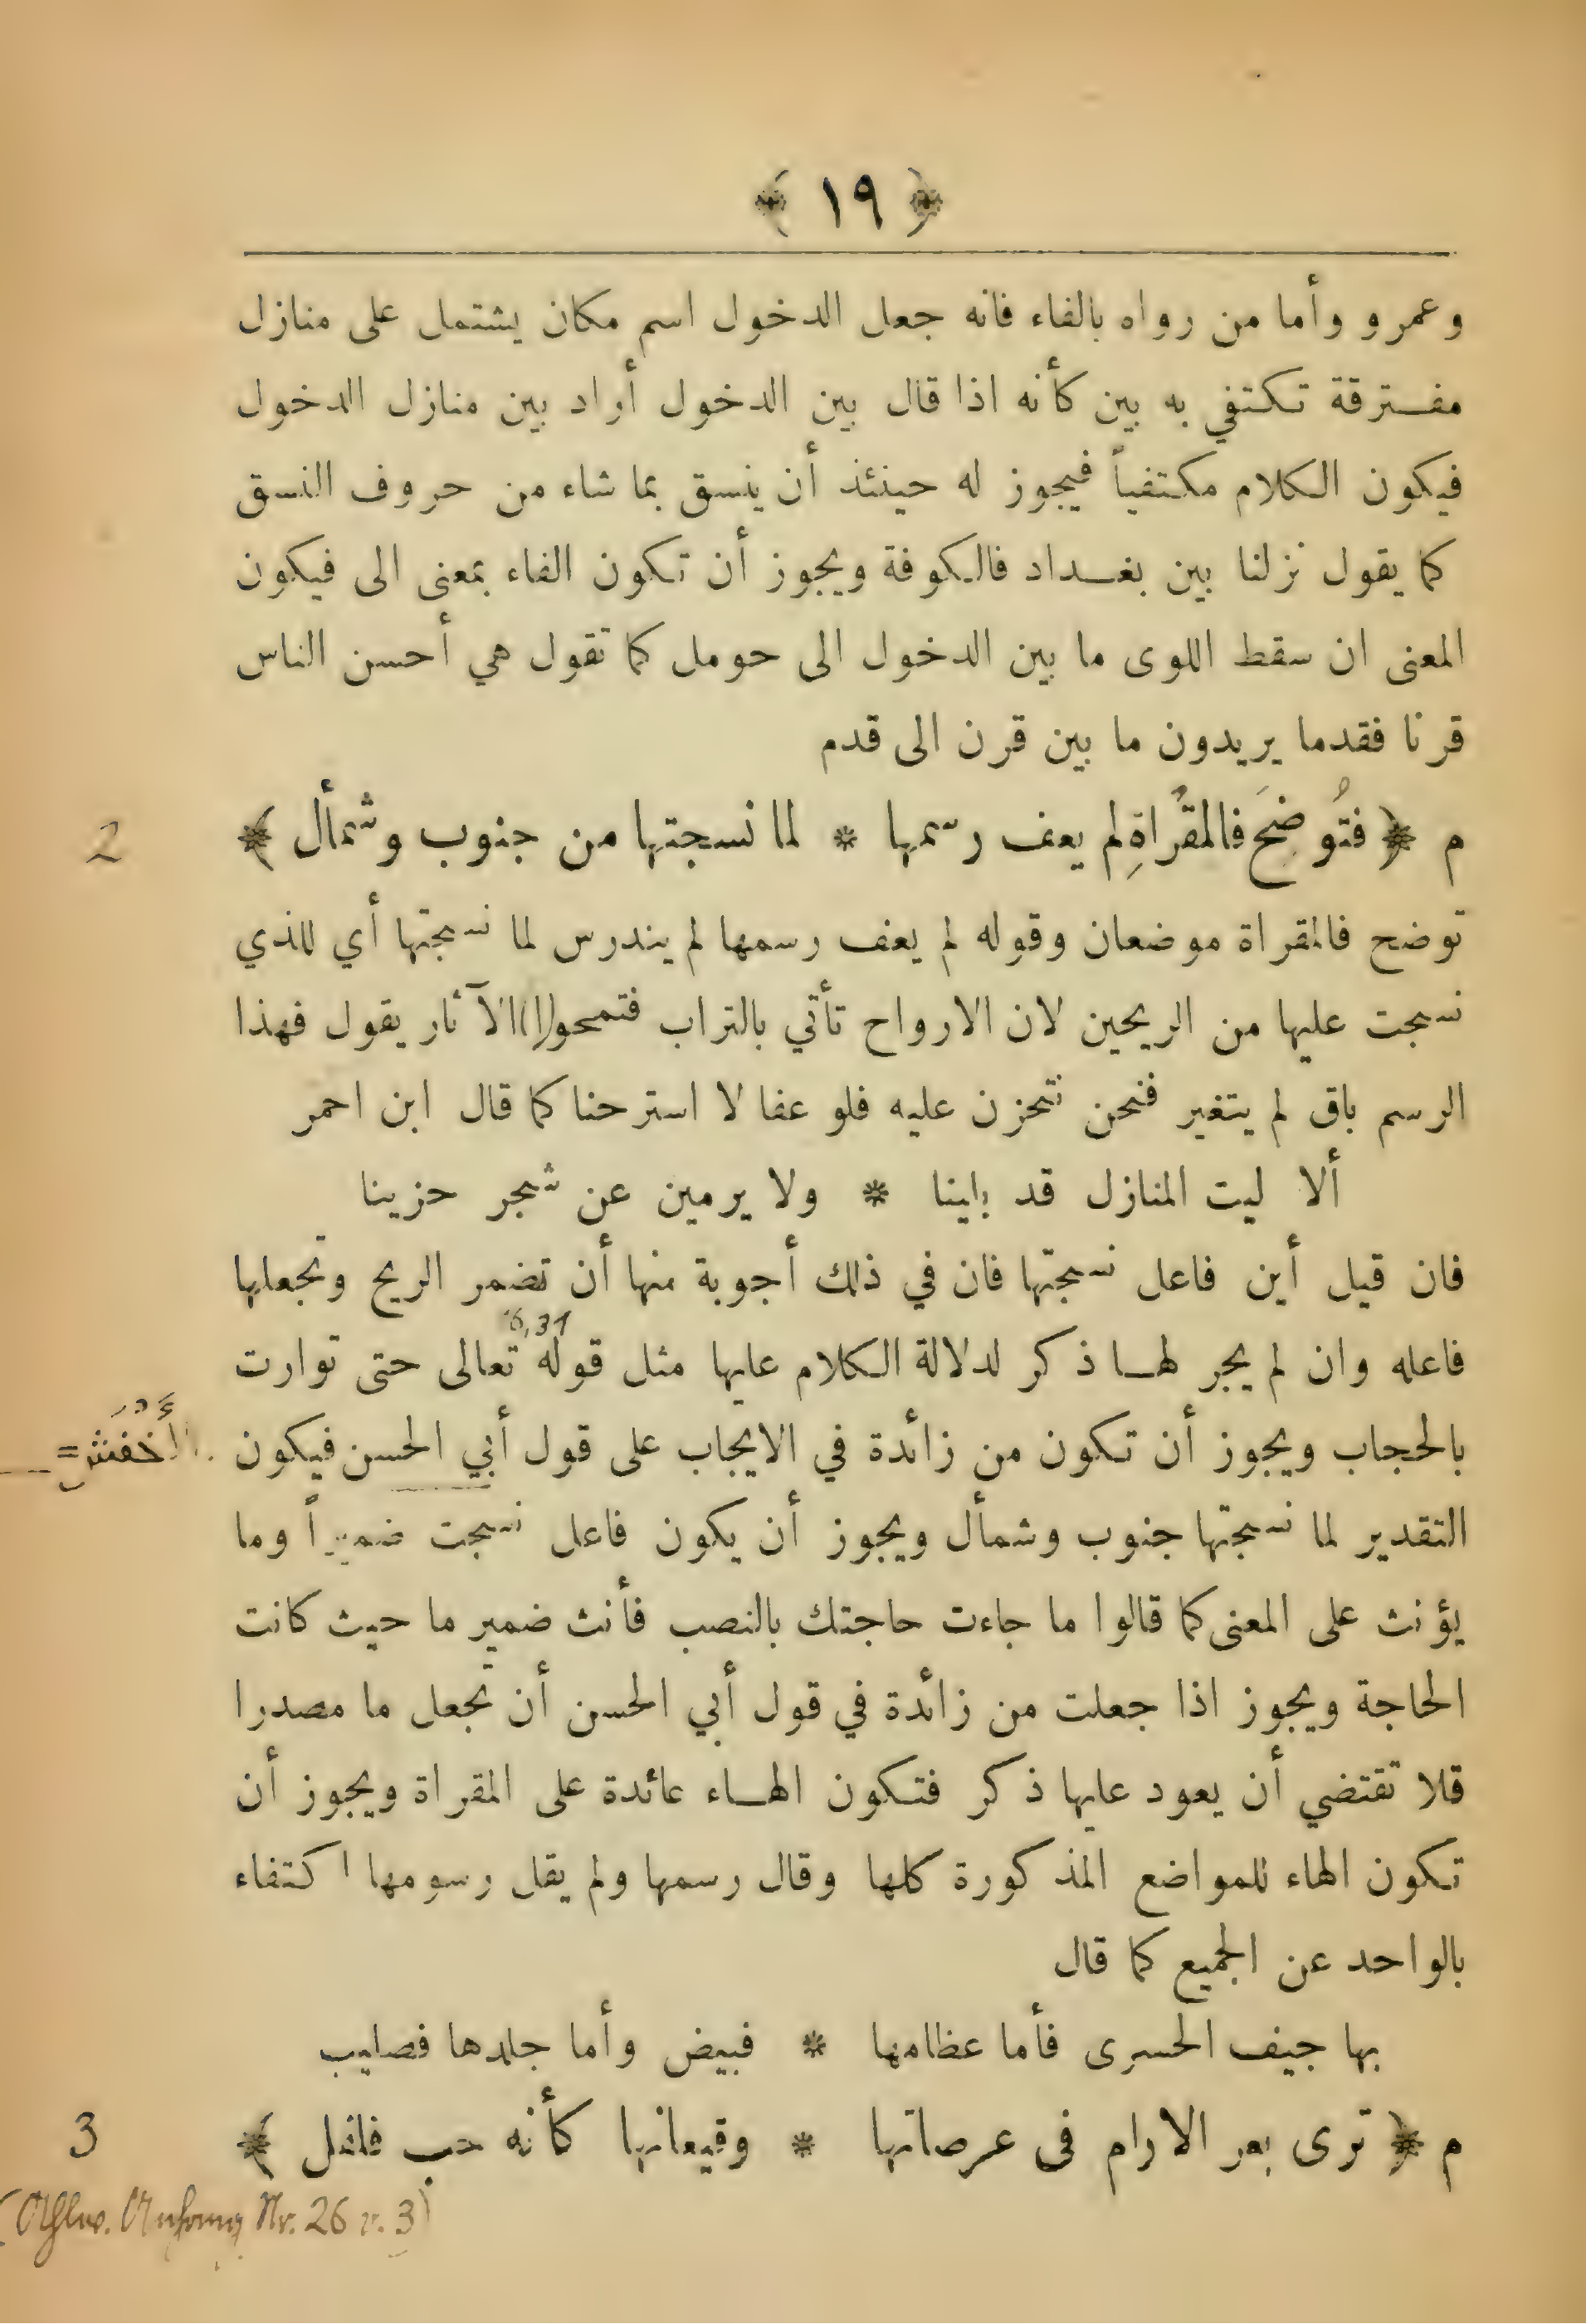 ﴿ ١٩ ﴾
وعمرو وأما من رواه بالفاء فانه جعل الدخول اسم مكان يشتمل على منازل
مفترقة تكتفي به بين كأنه اذا قال بين الدخول أراد بين منازل الدخول
فيكون الكلام مكتفياً فيجوز له حينئذ أن ينسق بما شاء من حروف النسق
كما يقول نزلنا بين بغداد فالكوفة ويجوز أن تكون الفاء بمعنى الى فيكون
المعنى ان سقط اللوى ما بين الدخول الى حومل كما تقول هي أحسن الناس
قرنا فقدما يريدون ما بين قرن الى قدم
2 م ﴿ فتُوضِحَ فالمقْراةِ لم يعف رسمها * لما نسجتها من جنوب وشمأل ﴾
توضح فالمقراة موضعان وقوله لم يعف رسمها لم يندرس لما نسجتها أي للذي
نسجت عليها من الريحين لان الارواح تأتي بالتراب فتمحو(ا)الآثار يقول فهذا
الرسم باق لم يتغير فنحن نتحزن عليه فلو عفا لا استرحنا كما قال ابن احمر
ألا ليت المنازل قد بلينا * ولا يرمين عن شجر حزينا
فان قيل أين فاعل نسجتها فان في ذلك أجوبة منها أن تضمر الريح وتجعلها
فاعله وان لم يجر لها ذكر لدلالة الكلام عليها مثل قوله تعالى حتى توارت
بالحجاب ويجوز أن تكون من زائدة في الايجاب على قول أبي الحسن فيكون
= أَخْفَش
التقدير لما نسجتها جنوب وشمأل ويجوز أن يكون فاعل نسجت ضميراً وما
يؤنث على المعنى كما قالوا ما جاءت حاجتك بالنصب فأنث ضمير ما حيث كانت
الحاجة ويجوز اذا جعلت من زائدة في قول أبي الحسن أن تجعل ما مصدرا
قلا تقتضي أن يعود عليها ذكر فتكون الهاء عائدة على المقراة ويجوز أن
تكون الهاء للمواضع المذكورة كلها وقال رسمها ولم يقل رسومها اكتفاء
بالواحد عن الجميع كما قال
بها جيف الحسرى فأما عظامها * فبيض وأما جلدها فصليب
3 م ﴿ ترى بعر الارام فى عرصاتها * وقيعانها كأنه حب فلفل ﴾
(Ahlw. Anhang Nr. 26 v. 3)